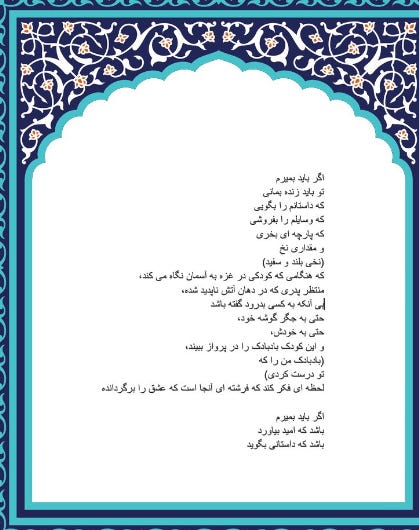 اگر باید بمیرم
تو باید زنده بمانی
که داستانم را بگویی
که وسایلم را بفروشی
که پارچه ای بخری
و مقداری نخ
(نخی بلند و سفید)
که هنگامی که کودکی در غزه به آسمان نگاه می کند،
منتظر پدری که در دهان آتش ناپدید شده،
بی آنکه به کسی بدرود گفته باشد
حتی به جگر گوشه خود،
حتی به خودش،
و این کودک بادبادک را در پرواز ببیند،
(بادبادک من را که
تو درست کردی)
لحظه ای فکر کند که فرشته ای آنجا است که عشق را برگردانده
اگر باید بمیرم
باشد که امید بیاورد
باشد که داستانی بگوید